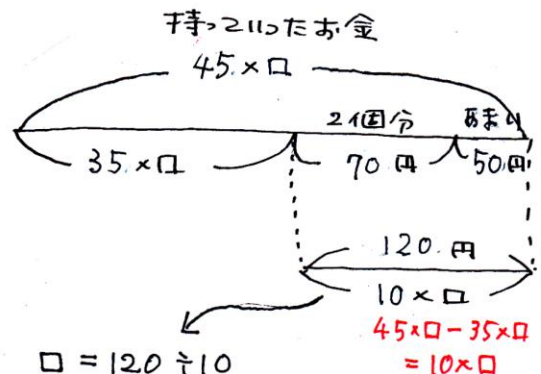 持っていったお金
45.×□
2個分 あまり
35.×□ 70.円 50円
120.円
10×□
45×□-35×□
□=120÷10 =10×□